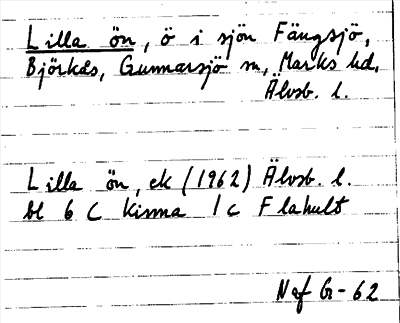 Lilla ön, ö i sjön Fängsjö,
Björkås, Gunnarsjö sn, Marks hd,
Älvsb. l.
Lilla ön, ek (1962) Älvsb. l.
bl 6 C Kinna 1 c Flahult
Naf Gr-62